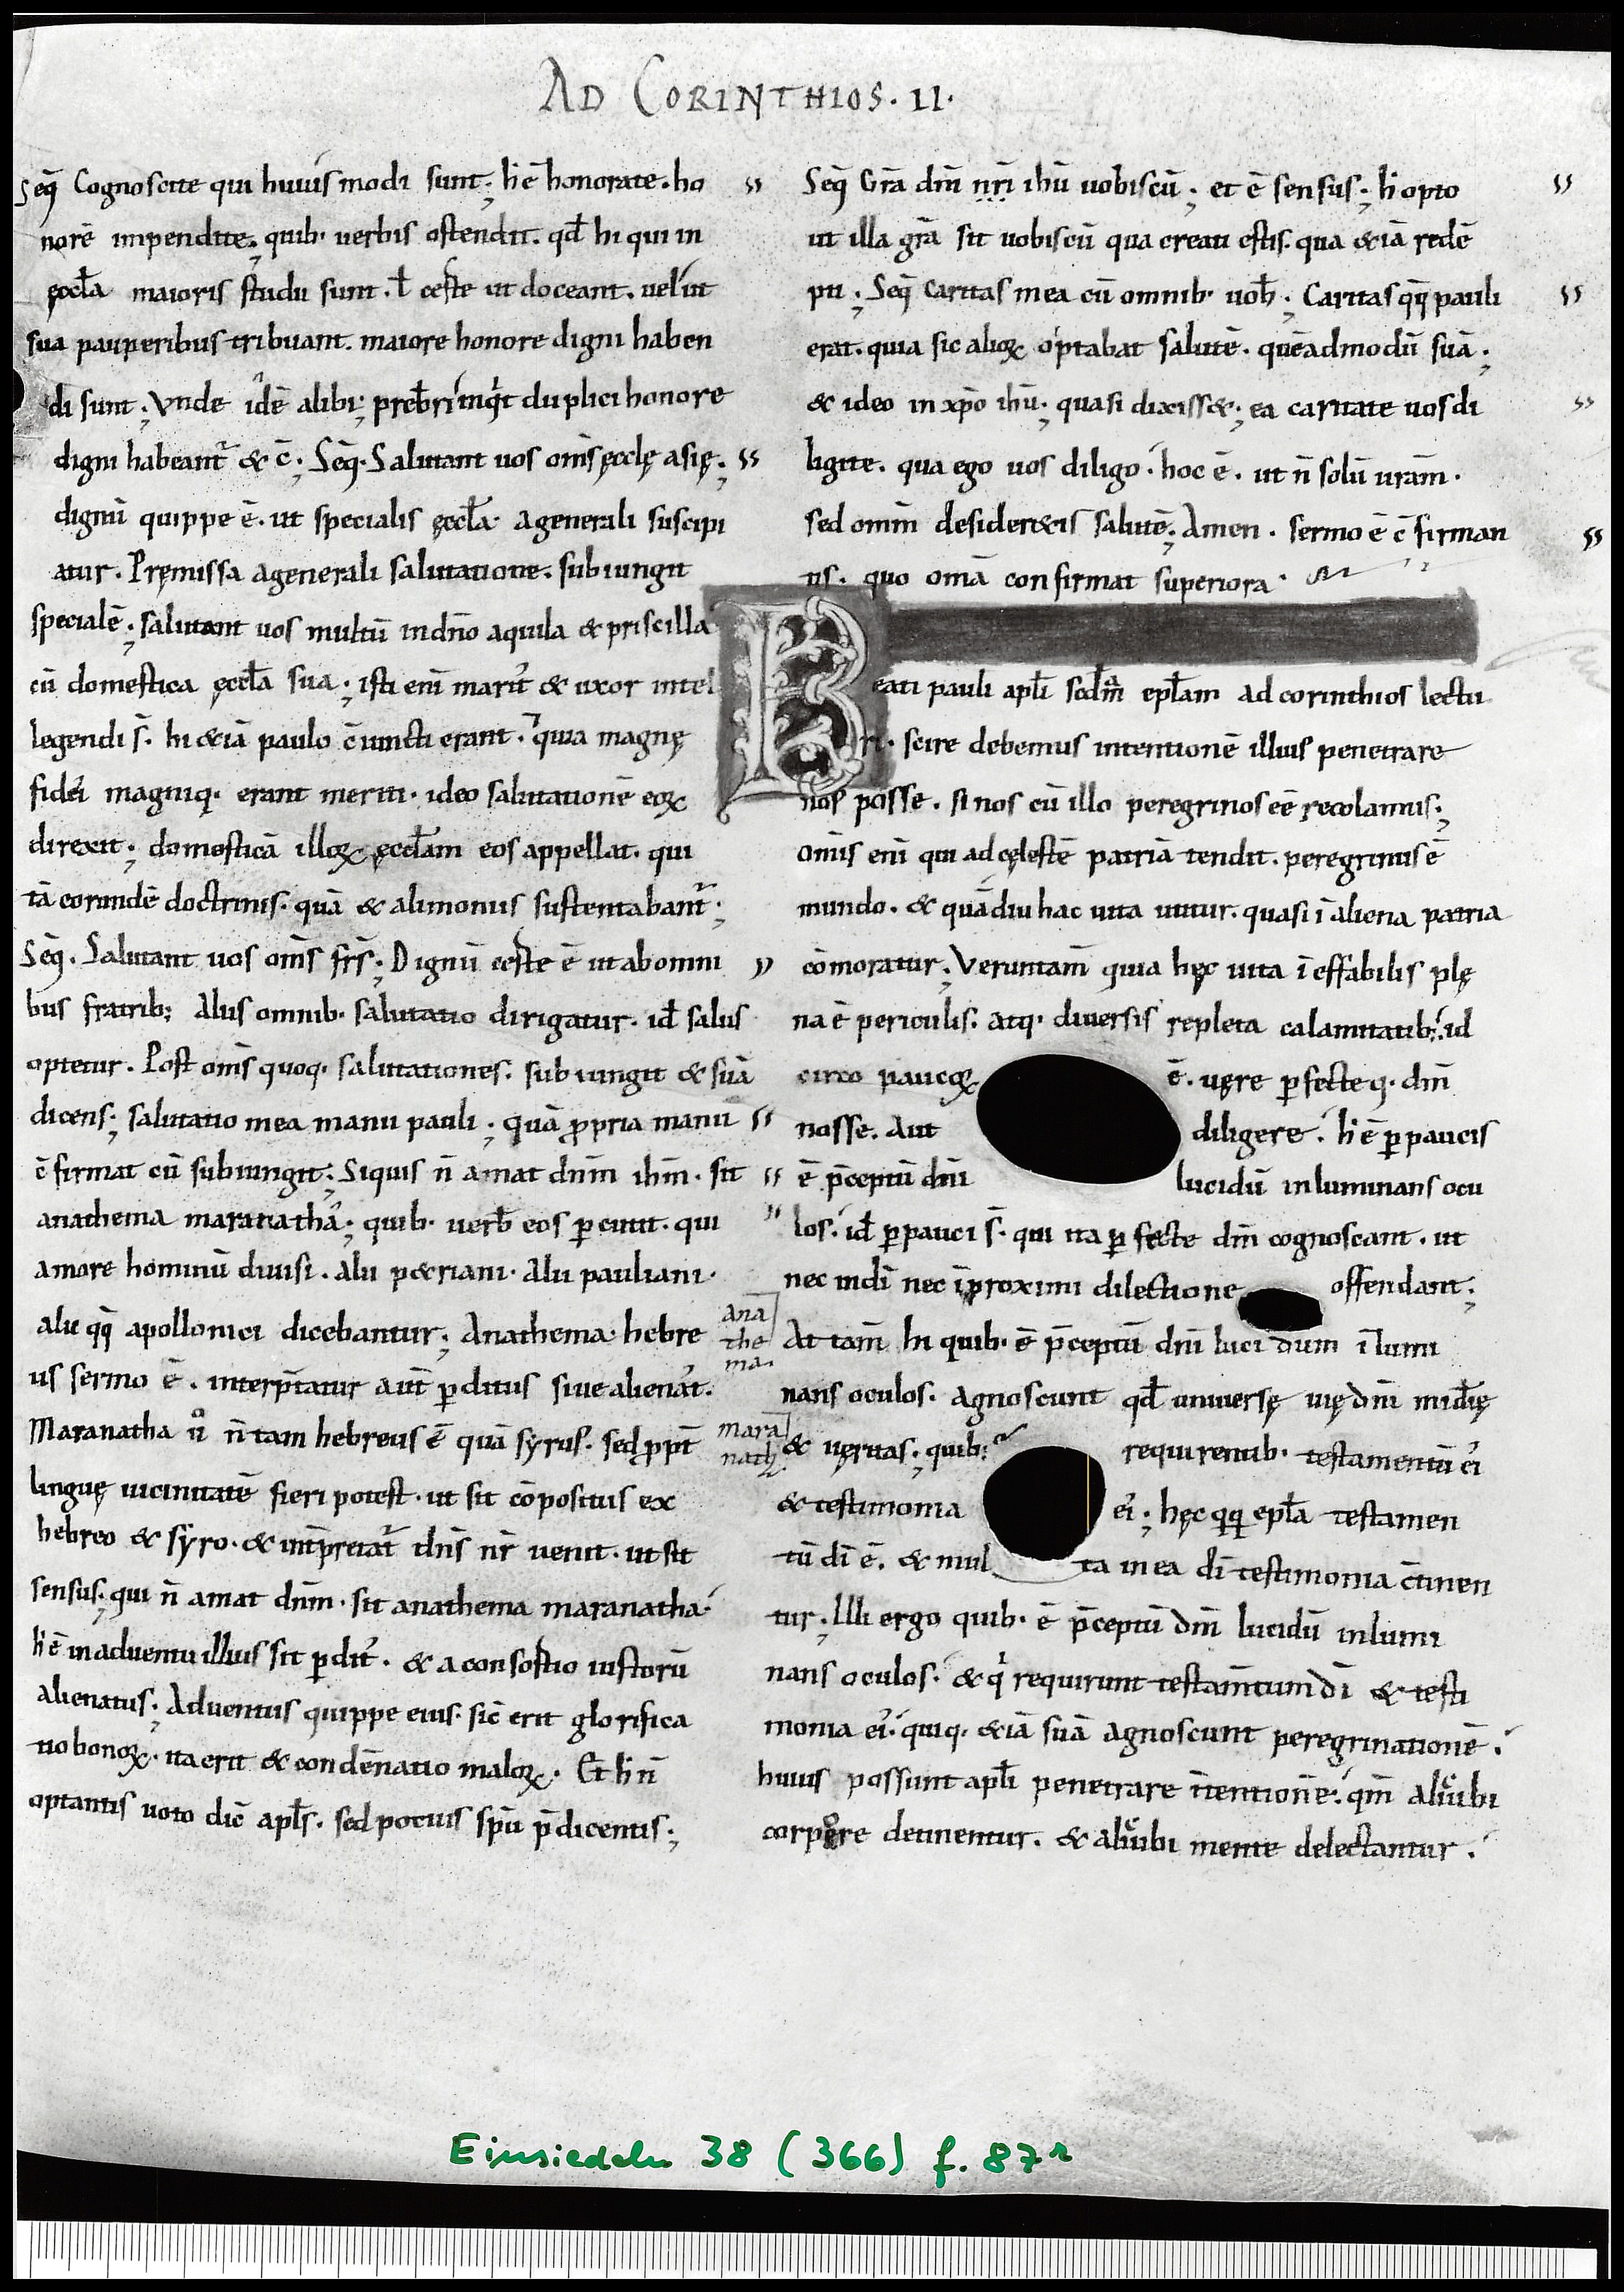 AD CORINTHIOS. II.
Seq̄ Cognoscite qui huiusmodi sunt; h̄ ē honorate. ho
norē impendite; quib. uerbis ostendit. qđ hi qui in
ęccła maioris studii sunt. ł certe ut doceant. uel ut
sua pauperibus tribuant. maiore honore digni haben
di sunt; Vnde idē alibi; prebr̄i inq̇t duplici honore
digni habeant̃ & c̄; Seq̄. Salutant uos om̄s ęcclę asię;
dignū quippe ē. ut specialis ęccła a generali suscipi
atur. Pręmissa a generali salutatione. subiungit
specialē; salutant uos multū in dn̄o aquila & priscilla
cū domestica ęccła sua; isti eni marit̃ & uxor intel
legendi s̄. hi &iā paulo c̄iuncti erant. quia magnę
fidei magniq. erant meriti. ideo salutationē eoꝝ
direxit; domesticā illoꝝ ęccłam eos appellat. qui
tā eorundē doctrinis. quā & alimoniis sustentabant̃;
Seq̄. Salutant uos om̄s fr̄s; Dignū certe ē ut ab omni
bus fratrib; aliis omnib. salutatio dirigatur. iđ salus
optetur. Post om̄s quoq. salutationes. subiungit & suā
dicens; salutatio mea manu pauli; quā ꝓpria manu
c̄firmat cū subiungit; Siquis n̄ amat dn̄m ihm̄. sit
anathema maranatha; quib. uerƀ eos ꝑcutit. qui
amore hominū diuisi. alii p&riani. alii pauliani.
alii qq̄ apollonici dicebantur; Anathema hebre
us sermo ē. interp̄tatur aut̄ ꝑditus siue alienat̃.
Maranatha ů n̄ tam hebreus ē quā syrus. sed ꝓpt̄
linguę uicinitatē fieri potest. ut sit cōpositus ex
hebreo & syro. & int̄pretat̃ dn̄s nr̄ uenit. ut sit
sensus; qui n̄ amat dn̄m. sit anathema maranatha.
h̄ ē in aduentu illius sit ꝑdit̃. & a consortio iustorū
alienatus; Aduentus quippe eius. sic̄ erit glorifica
tio bonoꝝ. ita erit & condēnatio maloꝝ. Et h̄ n̄
optantis uoto dic̄ apłs. sed potius spū p̄dicentis;
Ana
the
ma.
mara
nath
Seq̄ Gr̄a dn̄i nr̄i ihū uobiscū; et ē sensus; h̄ opto
ut illa gr̄a sit uobiscū qua creati estis. qua &iā redē
pti; Seq̄ Caritas mea cū omnib. uoƀ; Caritas qq̄ pauli
erat. quia sic alioꝝ optabat salutē. quēadmodū suā;
& ideo in xp̄o ihū; quasi dixiss&; ea caritate uos di
ligite. qua ego uos diligo. hoc ē. ut n̄ solū uram̄.
sed omm̄ desider&is salutē; Amen. sermo ē c̄firman
tis. quo om̄a confirmat superiora.
Beati pauli apłi scđm̄ epłam ad corinthios lectu
ri. scire debemus intentionē illius penetrare
nos posse. si nos cū illo peregrinos eē recolamus;
Om̄is eni qui ad cęlestē patriā tendit. peregrinus ē
mundo. & quādiu hac uita utitur. quasi ī aliena patria
cōmoratur; Veruntam̄ quia hęc uita ī effabilis plę
na ē periculis. atq. diuersis repleta calamitatib;. id
circo paucoꝝ ē. uere ꝑfecteq. dm̄
nosse. aut diligere. h̄ ē ꝑpaucis
ē p̄ceptū dn̄i lucidū inluminans ocu
los. iđ ꝑpauci s̄. qui ita ꝑfecte dm̄ cognoscant. ut
nec in dī nec ī proximi dilectione offendant;
At tam̄ hi quib. ē p̄ceptū dn̄i lucidum īlumi
nans oculos. agnoscunt qđ uniuersę uię dn̄i mīdię
& ueritas; quib; requirentib. testamentū ei
& testimonia ei; hęc qq̄ epła testamen
tū dī ē. & multa in ea dī testimonia c̄tinen
tur; Illi ergo quib. ē p̄ceptū dn̄i lucidū inlumi
nans oculos. & q̇ requirunt testam̄tum dī & testi
monia ei. quiq. &iā suā agnoscunt peregrinationē.
huius possunt apłi penetrare īntentionē. qm̄ aliubi
corpore detinentur. & aliubi mente delectantur.
Einsiedeln 38 (366) f. 87r